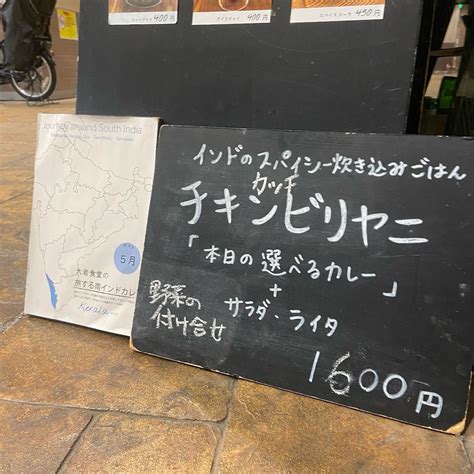 400円
400円
450円
Journey around South India
5月
大岩食堂の
旅する南インドカレ
Kerala
インドのスパイシー炊き込みごはん
カッチ
チキンビリヤニ
「本日の選べるカレー」
+
野菜の
付け合せ
サラダ・ライタ
1600円